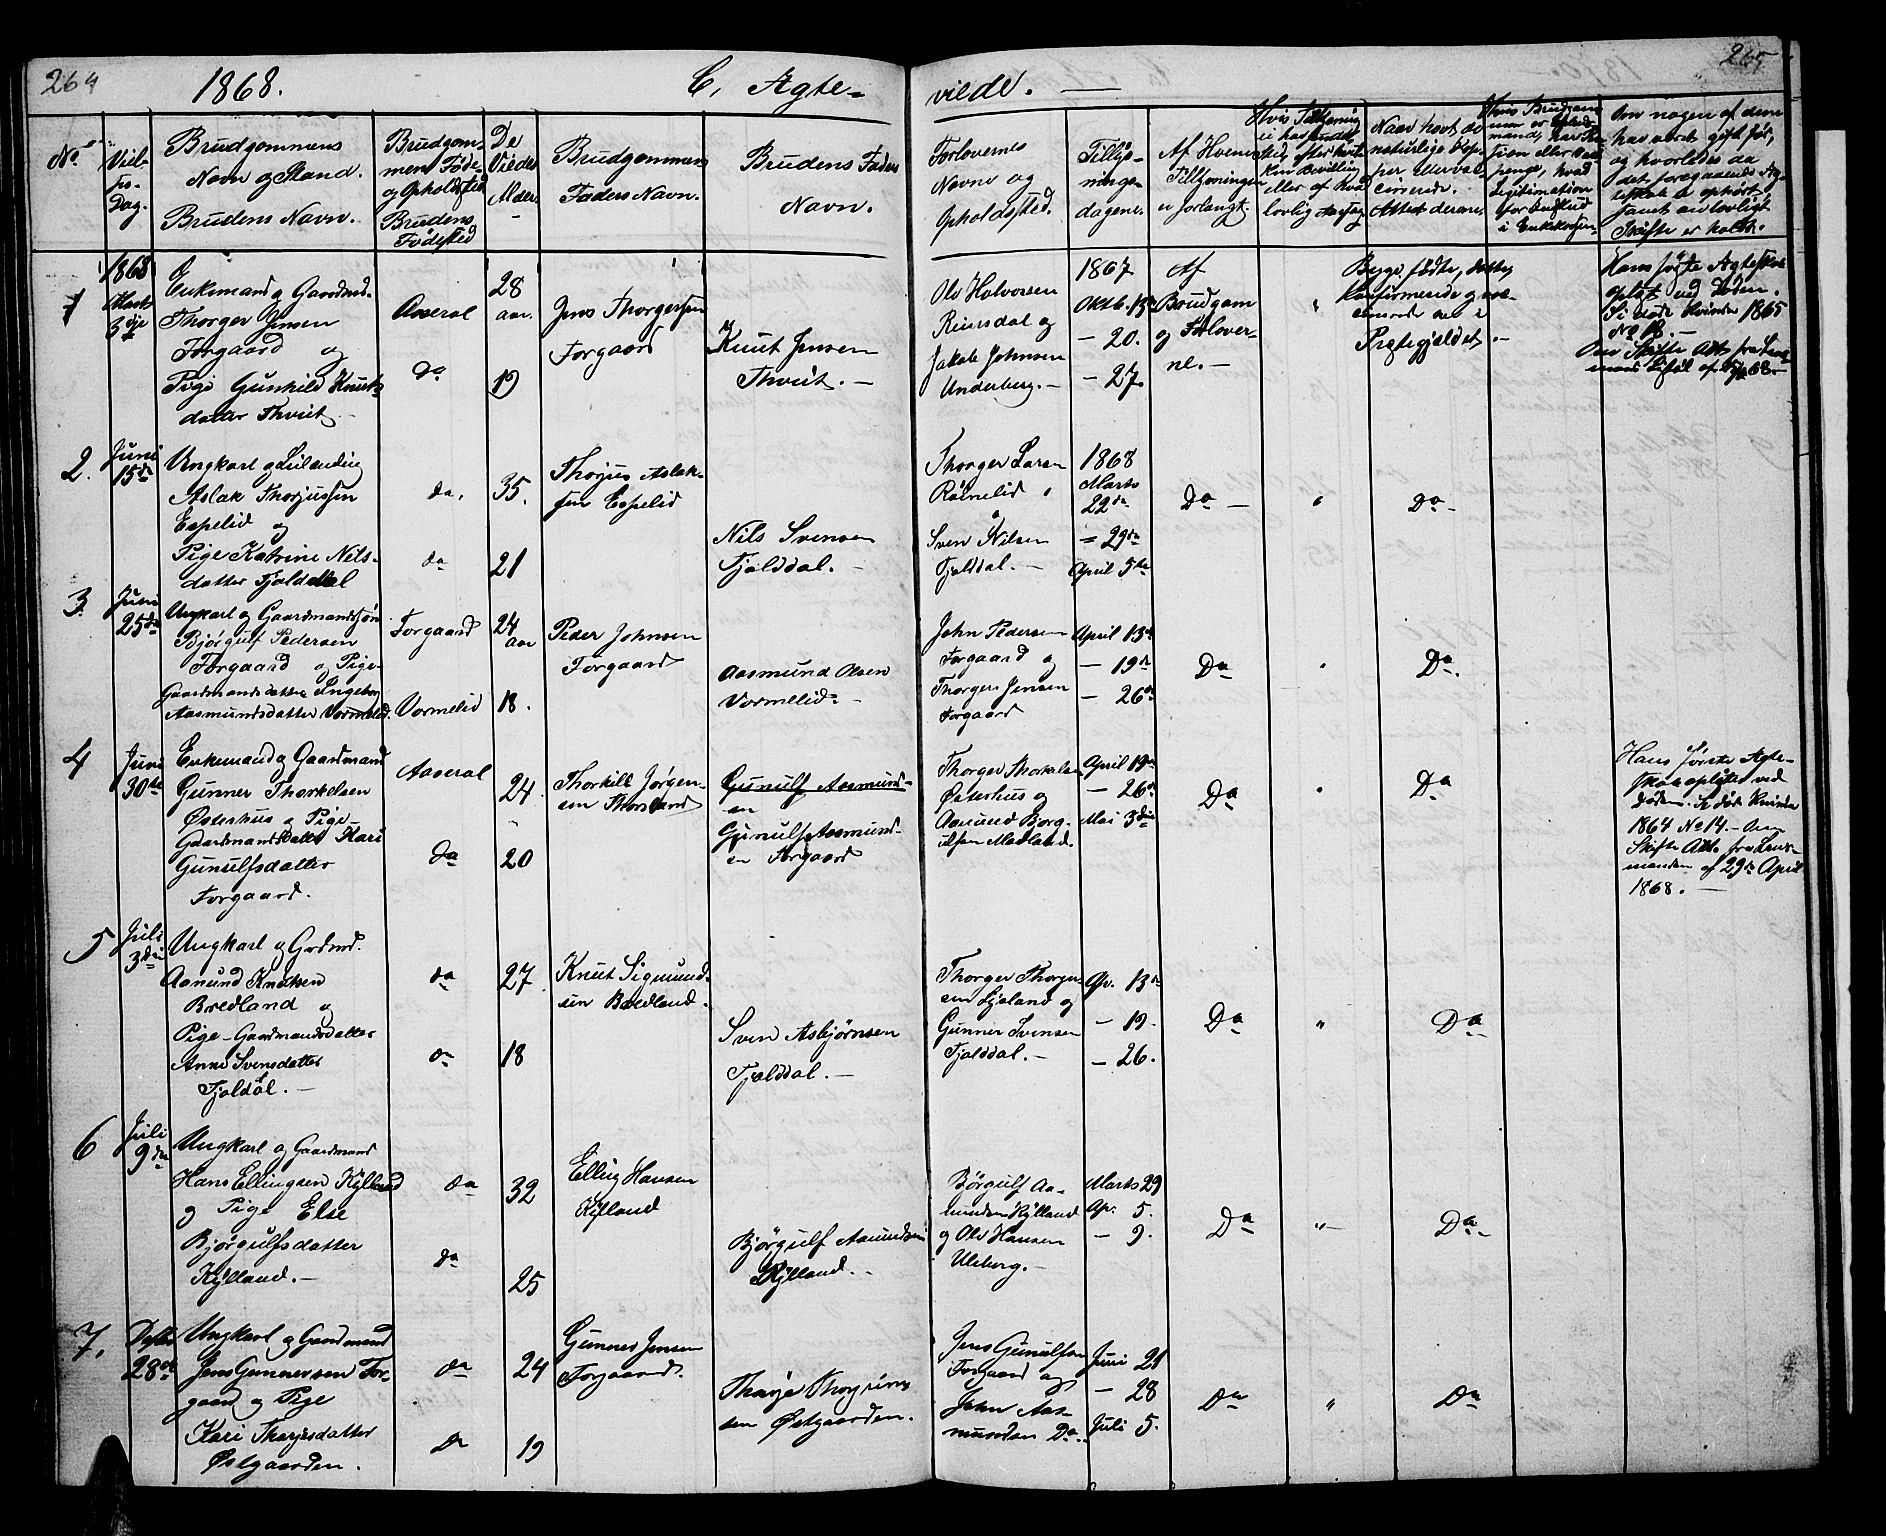 264
1868.
C, Ægte-
viede. —
265
No
Viel-
ses-
Dag.
Brudgommens
Navn og Stand.
Brudens Navn.
Brudgom-
mens Føde-
og Opholdsted
Brudens
Fødested
De
Viedes
Alder.
Brudgommens
Faders Navn.
Brudens Faders
Navn.
Forlovernes
Navne og
Opholdsted.
Tillys-
nings-
dagene.
Af Hvem
Tillysningen
er forlangt.
Hvis Tillysning
ei har fundet
Sted, efter hvil-
ken Bevilling
eller af hvad
lovlig Aarsag
Naar havt de
naturlige Kop-
per eller vac-
cinerede.
Attest derom.
Om nogen af dem
har været gift før,
og hvorledes da
det foregaaende Æg-
teskab er ophørt
samt om lovligt
Skifte er holdt.
1
1868
Marts
3die
Enkemand og Gaardmd.
Thorger Jensen
Forgaard og
Pige Gunhild Knuts-
datter Thveit —
Aaseral
da
28
aar.
19
Jens Thorgersen
Forgaard
Knut Jensen
Thveit. —
Ole Halvorsen
Reiersdal og
Jakob Johnsen
Underberg. —
1867
Oktb. 13de
— 20.
— 27.
Af
Brudgom
og Forlover-
ne. —
"
Bygs. fødte, dette
Konfirmerede og vac-
cinerede her i
Præstegjeldet. —
Hans første Ægteskab
opløst ved Døden.
Se døde Kvinder 1865
No 18. —
Om Skifte Att. fra Lens-
2.
Juni
15de
Ungkarl og Leilænding
Aslak Thorjussen
Espelid og
Pige Katrine Nils-
datter Fjelddal
da.
da
35.
21
Thorjus Aslak-
sen Espelid
Nils Svensen
Fjelddal. —
Thorger Larsen
Røinelid
Sven Nilsen
Fjelddal. —
1868
Marts
22de
= 29de
April 5te
Da —
"
Da —
3.
Juni
25de
Ungkarl og Gaardmandssøn
Bjørgulf Pedersen
Forgaard og Pige-
Gaardmandsdatter Ingeborg
Aasmundsdatter Vormelid.
Forgaard
Vormelid
24
aar
18.
Peder Johnsen
Forgaard
Aasmund Olsen
Vormelid. —
John Pedersen
Forgaard og
Thorger Jensen
Forgaard
April 13de
— 19de
— 26de
Da
"
Da.
4
Juni
30te
Enkemand og Gaardmand
Gunner Thorkelsen
Østerhus og Pige-
Gaardmandsdatter Kari
Gunulfsdatter
Forgaard.
Aaseral
da
24
20
Thorkild Jørgen-
sen Thorsland
Gunulf Aasmund-
en
Gunulf Aasmund-
en Forgaard
Thorger Thorkelsen
Østerhus og
Aanund Bjørg-
ulfsen Medland.
April 19de
— 26de
Mai 3die
Da
"
Da
Hans første Ægte-
skab opløst ved
døden. Se døde Kvinder
1864 No 14. — Om
Skifte Att. fra Lens-
manden af 29de April
1868. —
5
Juli
3die
Ungkarl og Grdmd.
Aanund Knutsen
Bredland og
Pige-Gaardmandsdatter
Anne Svensdatter
Fjeldal. —
da
da
27
18
Knut Sigmund-
sen Bredland.
Sven Asbjørnsen
Fjelddal. —
Thorger Thorger-
sen Ljosland og
Gunner Svensen
Fjelddal. —
Ap. 13de
— 19.
— 26.
Da
"
Da
6
Juli
9de
Ungkarl og Gaardmand
Hans Ellingsen Kylland
og Pige Else
Bjørgulfsdatter
Kylland. —
da
da
32
25
Elling Hansen
Kylland
Bjørgulf Aanundsen
Kylland. —
Børgulf Aa-
nundsen Kylland
og Ole Hansen
Uleberg. —
Marts 29
Ap. 5.
— 9.
Da
"
Da. —
7.
28de
Ungkarl og Gaardmand
Jens Gunnersen For-
gaard og Pige
Kari Thorjesdatter
Østgaarden.
da
Da
24
19
Gunner Jensen
Forgaard.
sen Østgaarden.
Jens Gunulfsen
Forgaard og
John Aas-
mundsen Da.
Juni 21
— 28
Juli 5.
Da
"
Da